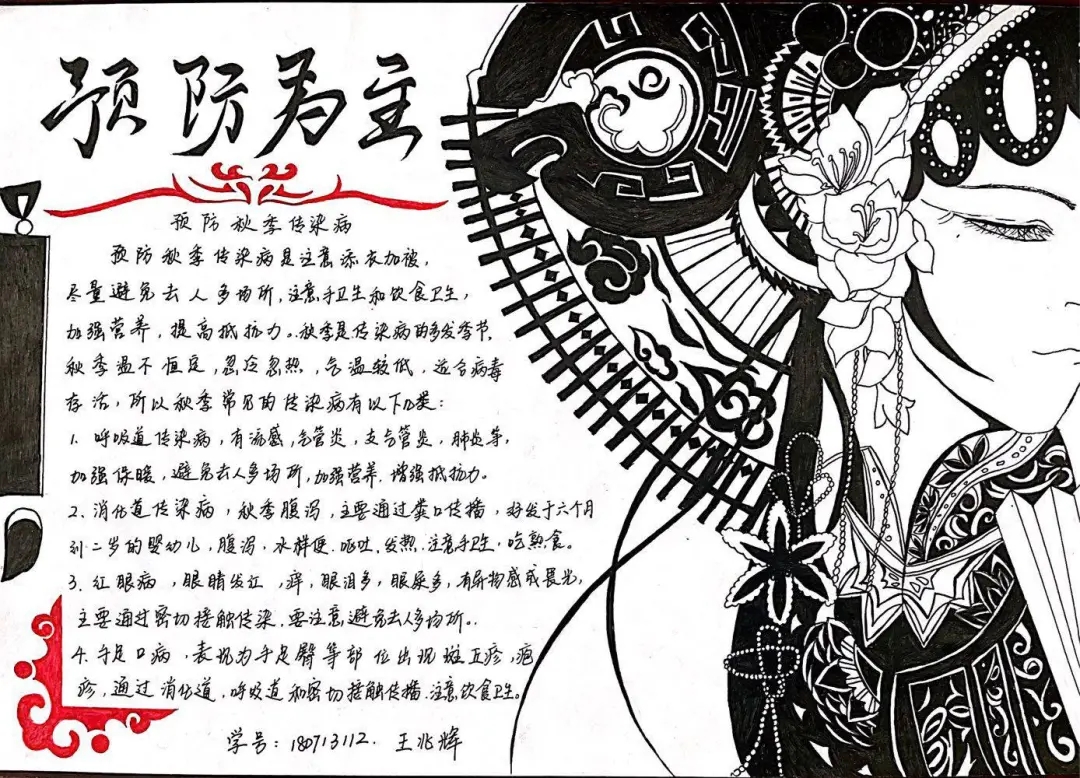 预防为主
预防秋季传染病
预防秋季传染病是注意添衣加被，
尽量避免去人多场所，注意手卫生和饮食卫生，
加强营养，提高抵抗力。秋季是传染病的多发季节，
秋季温不恒定，忽冷忽热，气温较低，适合病毒
存活，所以秋季常见的传染病有以下几类：
1. 呼吸道传染病，有流感，气管炎，支气管炎，肺炎等，
加强保暖，避免去人多场所，加强营养，增强抵抗力。
2. 消化道传染病，秋季腹泻，主要通过粪口传播，好发于六个月
到二岁的婴幼儿，腹泻，水样便，呕吐，发热，注意手卫生，吃熟食。
3. 红眼病，眼睛发红，痒，眼泪多，眼屎多，有异物感或畏光，
主要通过密切接触传染，要注意避免去人多场所。
4. 手足口病，表现为手足臀等部位出现斑丘疹，疱
疹，通过消化道，呼吸道和密切接触传播，注意饮食卫生。
学号：180713112. 王兆辉